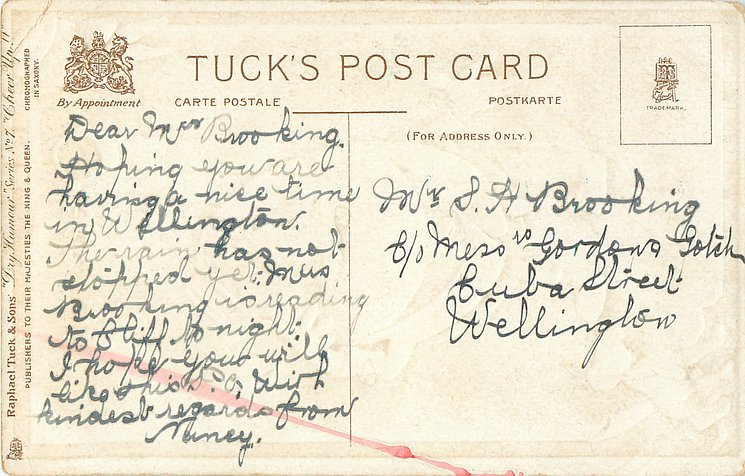 TUCK'S POST CARD
By Appointment
CARTE POSTALE
POSTKARTE
(FOR ADDRESS ONLY.)
TRADE MARK.
Raphael Tuck & Sons' "Dry Humour" Series No 7. "Cheer Up!!"
PUBLISHERS TO THEIR MAJESTIES THE KING & QUEEN.
CHROMOGRAPHED
IN SAXONY.
Dear Mrs Brooking.
Hoping you are
having a nice time
in Wellington.
The rain has not
stopped yet. Miss
Brooking is reading
to Cliff to night.
I hope you will
like this P.C. With
kindest regards from
Nancy.
Mrs S. H Brooking
C/o Messrs Gordon & Gotch
Cuba Street
Wellington